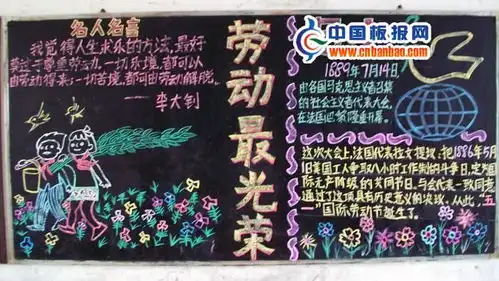 名人名言
我觉得人生求乐的方法,最好
莫过于尊重劳动。一切乐境,都可以
由劳动得来,一切苦境,都可由劳动解脱。
——李大钊
劳动最光荣
中国板报网
www.cnbanbao.cn
1889年7月14日
由各国马克思主义者召集
的社会主义者代表大会,
在法国巴黎隆重开幕。
这次大会上,法国代表拉文提议:把1886年5月
1日美国工人争取八小时工作制的斗争日,定为国
际无产阶级的共同节日。与会代表一致同意,
通过了这项具有历史意义的决议。从此,"五
一"国际劳动节诞生了。